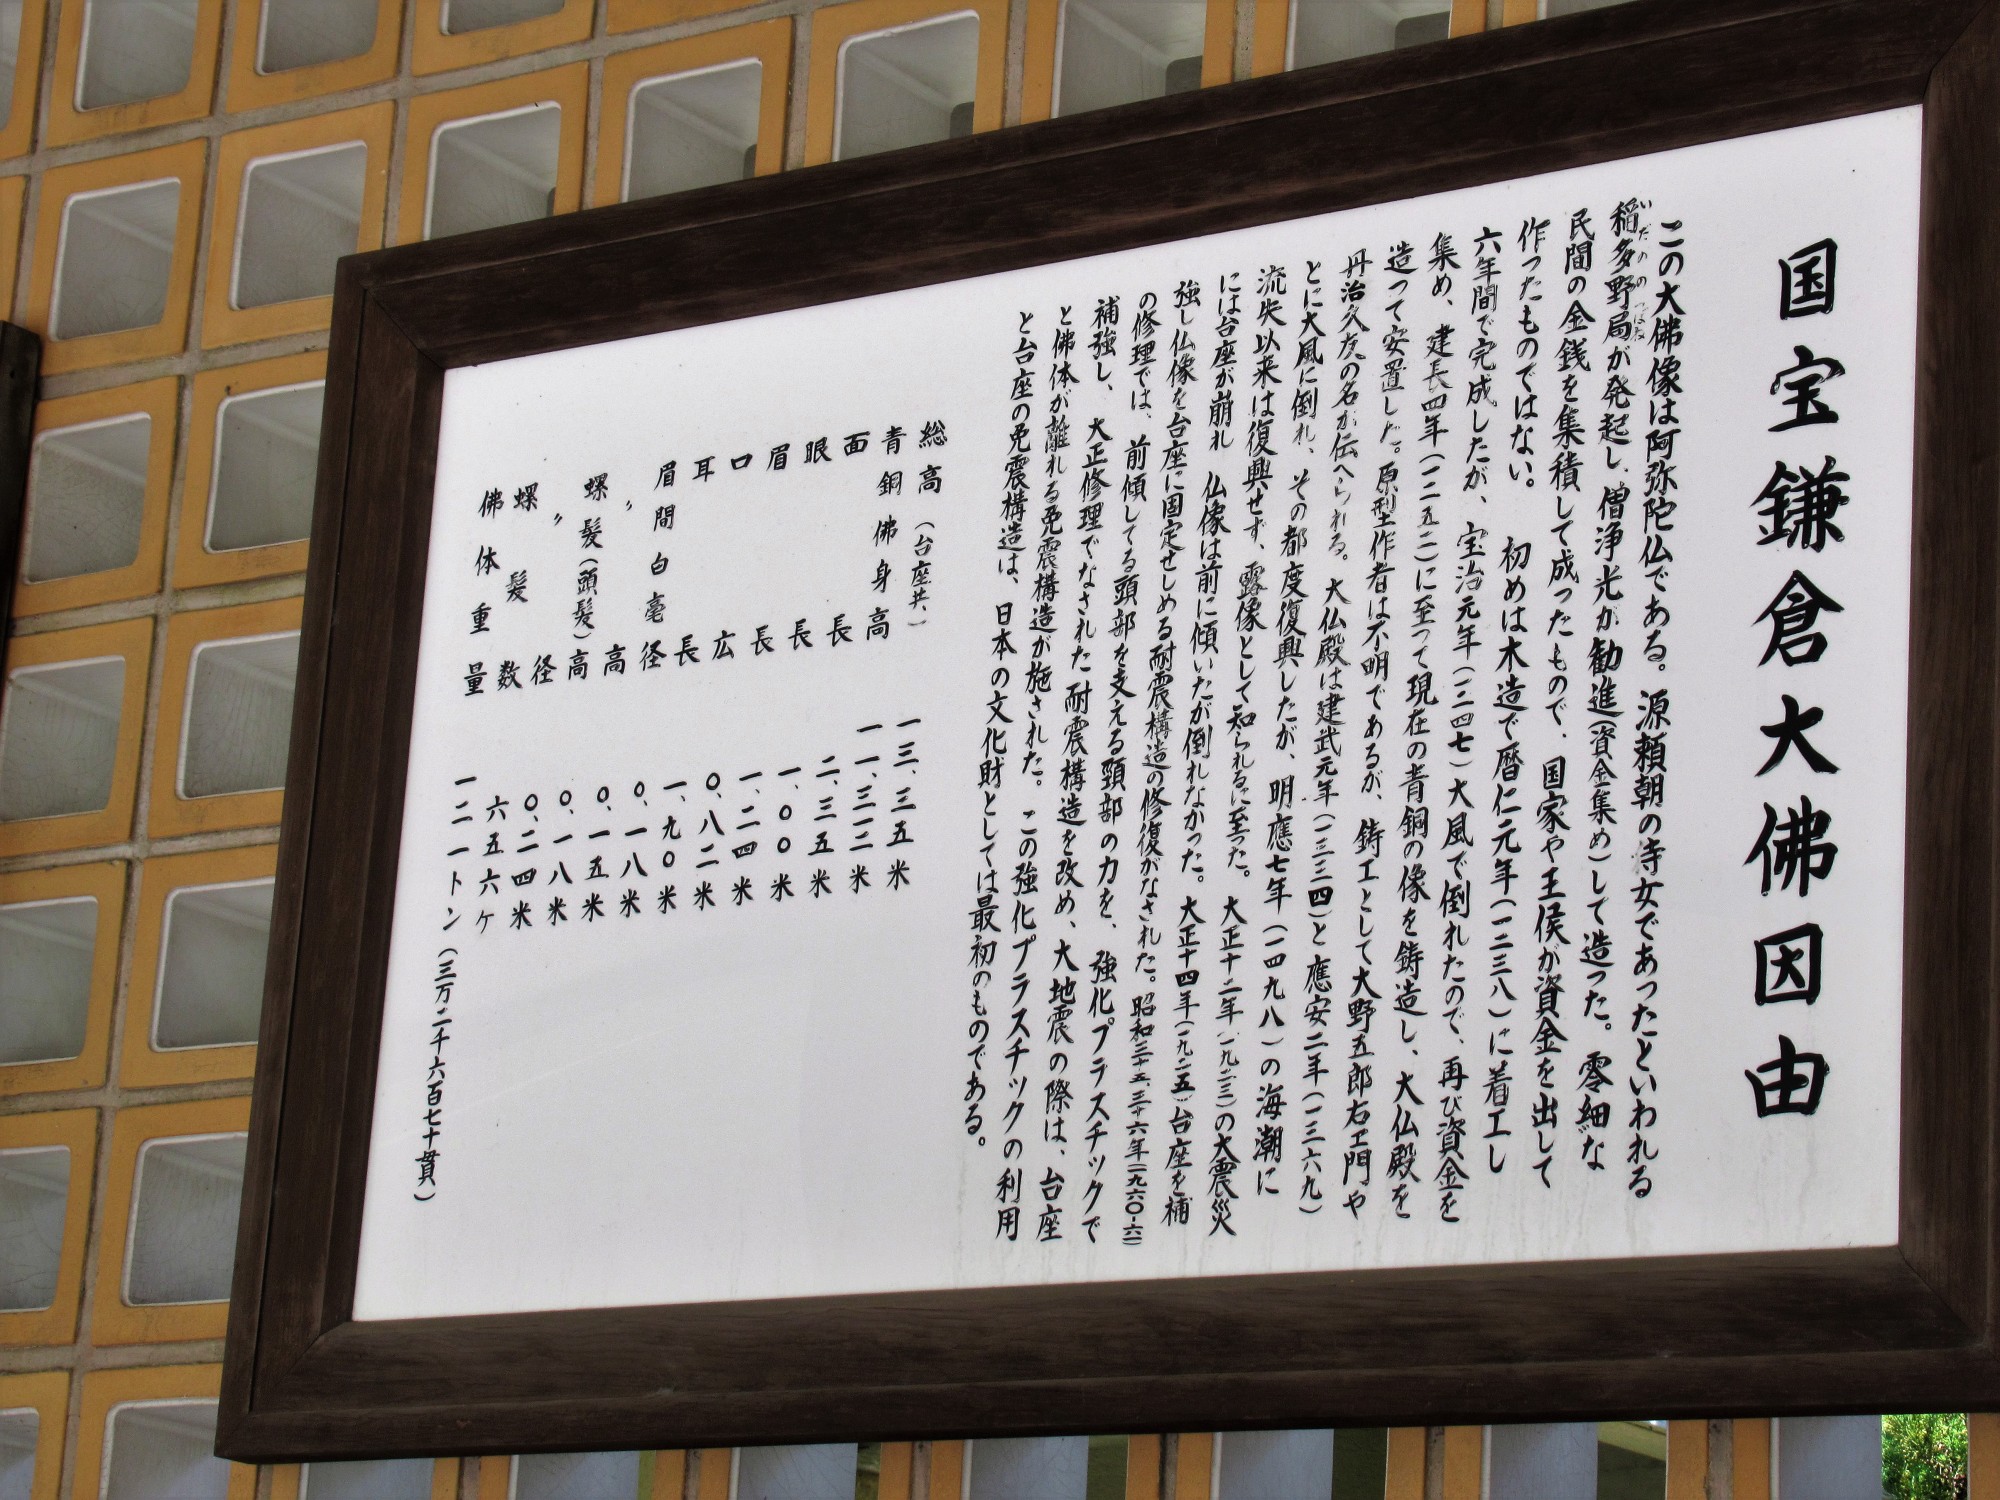 国宝鎌倉大佛因由
この大佛像は阿弥陀仏である。源頼朝の侍女であったといわれる
稲多野局が発起し、僧浄光が勧進(資金集め)して造った。零細な
いだののつぼね
民間の金銭を集積して成ったもので、国家や王侯が資金を出して
作ったものではない。 初めは木造で暦仁元年(一二三八)に着工し
六年間で完成したが、宝治元年(一二四七)大風で倒れたので、再び資金を
集め、建長四年(一二五二)に至って現在の青銅の像を鋳造し、大仏殿を
造って安置した。原型作者は不明であるが、鋳工として大野五郎右ヱ門や
丹治久友の名が伝へられる。 大仏殿は建武元年(一三三四)と應安二年(一三六九)
とに大風に倒れ、その都度復興したが、明應七年(一四九八)の海潮に
流失以来は復興せず、露像として知られるに至った。 大正十二年(一九二三)の大震災
には台座が崩れ 仏像は前に傾いたが倒れなかった。大正十四年(一九二五)台座を補
強し仏像を台座に固定せしめる耐震構造の修復がなされた。昭和三十五、三十六年(一九六〇-六一)
の修理では、前傾してる頭部を支える頸部の力を、強化プラスチックで
補強し、大正修理でなされた耐震構造を改め、大地震の際は、台座
と佛体が離れる免震構造が施された。この強化プラスチックの利用
と台座の免震構造は、日本の文化財としては最初のものである。
総高(台座共) 一三.三五米
青銅佛身高 一一.三一二米
面長 二.三五米
眼長 一.〇〇米
眉長 一.二四米
口広 〇.八二米
耳長 一.九〇米
眉間白毫径 〇.一八米
〃 高 〇.一五米
螺髪(頭髪)高 〇.一八米
〃 径 〇.二四米
螺髪数 六五六ケ
佛体重量 一二一トン(三万二千六百七十貫)